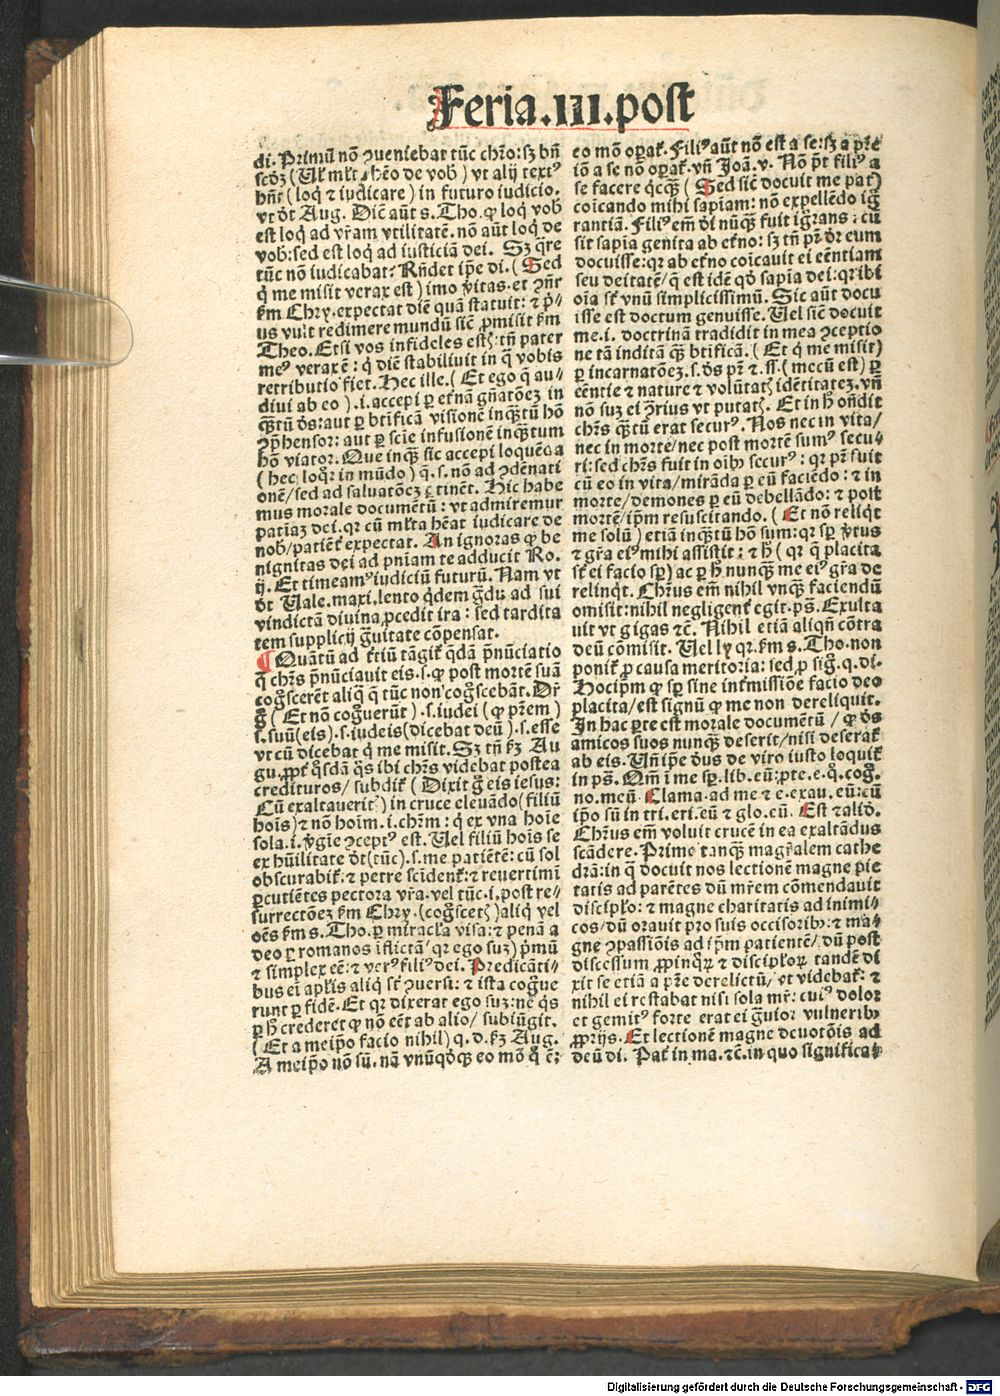 Feria.III.post
di. Primū nō ꝯueniebat tūc chr̄o: sꝫ bn̄
scd̓ꝫ (Vl̓r ml̓t hēo de vob̓) vt alij textꝰ
hn̄t (loq̓ ⁊ iudicare) in futuro iudicio.
vt d̓t Aug. Dic̄ aūt s. Tho. ꝙ loq̓ vob̓
est loq̓ ad vr̄am vtilitatē. nō aūt loq̓ de
vob̓: sed est loq̓ ad iusticiā dei. Sꝫ q̄re
tūc nō iudicabat? Rn̄det ip̄e di. (Sed
q̓ me misit verax est) imo v̓itas. et ꝯn̄r
ẜm Chry. expectat diē quā statuit: ⁊ p̓⸗
us vult redimere mundū sic̄ ꝓmisit ẜm
Theo. Etsi vos infideles estꝭ: tn̄ pater
meꝰ verax ē: q̓ diē stabiliuit in q̄ vobis
retributio fiet. Hec ille. (Et ego q̄ au⸗
diui ab eo) .i. accepi ꝑ et̓nā gn̄atōeꝫ in
qͣꝫtū d̓s: aut ꝑ btificā visionē inqͣꝫtū hō
ꝯp̄hensor: aut ꝑ scīe infusionē inqͣꝫtum
hō viator. Que inqͣꝫ sic accepi loquēda
(hec loq̓r in mūdo) q.s. nō ad ꝯdēnati
onē/ sed ad saluatōeꝫ ꝑtinēt. Hic habe
mus morale documētū: vt admiremur
patīaꝫ dei. qr cū ml̓ta hēat iudicare de
nob̓/ patiēt̓ expectat. An ignoras ꝙ be
nignitas dei ad pn̄iam te adducit Ro.
ij. Et timeamꝰ iudiciū futurū. Nam vt
d̓t Vale. maxi. lento q̓dem g̓du ad sui
vindictā diuina ꝓcedit ira: sed tardita
tem supplicij g̓uitate cōpensat.
¶ Quātū ad t̓tiū tāgit̓ q̄dā p̄nūciatio
q̄ chr̄s p̄nūciauit eis. s. ꝙ post mortē suā
cog̓scerēt aliq̓ q̄ tūc non cog̓scebāt. Dr̄
g̓ (Et nō cog̓uerūt) .s. iudei (ꝙ pr̄em)
.s. suū (eis) .s. iudeis (dicebat deū) .s. esse
vt cū dicebat q̓ me misit. Sꝫ tn̄ ẜꝫ Au
gu. ꝓpt̓ q̓sdā q̓s ibi chr̄s videbat postea
credituros/ subdit̓ (Dixit g̓ eis iesus:
Cū exaltauerit̓) in cruce eleuādo (filiū
hoīs) ⁊ nō hoīm .i. chr̄m: q̓ ex vna hoīe
sola .i. v̓gīe ꝯceptꝰ est. Vel filiū hoīs se
ex hūilitate d̓t (tūc) .s. me patiētē: cū sol
obscurabit̓: ⁊ petre scīdent̓: ⁊ reuertimī
ꝑcutiētes pectora vr̄a. vel tūc .i. post re⸗
surrectōeꝫ ẜm Chry. (cog̓scetꝭ) aliq̓ vel
oēs ẜm s. Tho. ꝑ miracl̓a visa: ⁊ penā a
deo ꝑ romanos īflictā (qr ego suꝫ) p̓mū
⁊ simplex eē: ⁊ verꝰ filiꝰ dei. Predicāti⸗
bus eī apl̓is aliq̓ st̄ ꝯuersi: ⁊ ista cog̓ue
runt ꝑ fidē. Et qr dixerat ego suꝫ: ne q̓s
ꝑ h̓ crederet ꝙ nō eēt ab alio/ subiūgit.
(Et a meip̄o facio nihil) q. d. ẜꝫ Aug.
A meip̄o nō sū. nā vnūqd̓qꝫ eo mō q̓ ē:
eo mō oꝑat̓. Filiꝰ aūt nō est a se: sꝫ a pr̄e
iō a se nō oꝑat̓. vn̄ Joā. v. Nō pōt filiꝰ a
se facere q̓cqͣꝫ (Sed sic̄ docuit me pat̓)
cōicando mihi sapīam: nō expellēdo ig̓
rantiā. Filiꝰ em̄ dī nūqͣꝫ fuit ig̓rans: cū
sit sapīa genita ab et̓no: sꝫ tn̄ pr̄ dr̄ eum
docuisse: qr ab et̓no cōicauit ei eēntiam
seu deitatē/ q̄ est idē qd̓ sapīa dei: qr ibi
oīa st̄ vnū simplicissimū. Sic aūt docu
isse est doctum genuisse. Vel sic̄ docuit
me .i. doctrinā tradidit in mea ꝯceptio
ne tā inditā qͣꝫ btificā. (Et q̓ me misit)
ꝑ incarnatōeꝫ .s. d̓s pr̄ ⁊ .ss. (mecū est) ꝑ
eēntie ⁊ nature ⁊ volūtatꝭ idētitateꝫ. vn̄
nō suꝫ ei ꝯ̓rius vt putatꝭ. Et in h̓ on̄dit
chr̄s qͣꝫtū erat securꝰ. Nos nec in vita/
nec in morte/ nec post mortē sumꝰ secu⸗
ri: sed chr̄s fuit in oīb̓ securꝰ: qr pr̄ fuit
cū eo in vita/ mirāda ꝑ eū faciēdo: ⁊ in
morte/ demones ꝑ eū debellādo: ⁊ post
mortē/ ip̄m resuscitando. (Et nō reliq̓t
me solū) etiā inqͣꝫtū hō sum: qr sꝑ v̓tus
⁊ gr̄a eiꝰ mihi assistit: ⁊ h̓ (qr q̄ placita
st̄ ei facio sꝑ) ac ꝑ h̓ nunqͣꝫ me eiꝰ gr̄a de
relinq̓t. Chr̄us em̄ nihil vnqͣꝫ faciendū
omisit: nihil negligent̓ egit. ps̄. Exulta
uit vt gigas ⁊c̄. Nihil etiā aliqn̄ cōtra
deū cōmisit. Vel ly qr. ẜm s. Tho. non
ponit̓ ꝓ causa meritoria: sed ꝓ sig̓. q. di.
Hocip̄m ꝙ sꝑ sine int̓missiōe facio deo
placita/ est signū ꝙ me non dereliquit.
In hac ꝑte est morale documētū/ ꝙ d̓s
amicos suos nunqͣꝫ deserit/ nisi deserat̓
ab eis. Vn̄ ip̄e dn̄s de viro iusto loquit̓
in ps̄. Qm̄ ī me sꝑ. lib. eū: pte. e. q. cog̓.
no. meū. Clama. ad me ⁊ e. exau. eū: cū
ip̄o sū in tri. eri. eū ⁊ glo. eū. Est ⁊ aliō.
Chr̄us em̄ voluit crucē in ea exaltādus
scādere. Primo tanqͣꝫ magr̄alem cathe
drā: in q̄ docuit nos lectionē magne pie
tatis ad parētes dū mr̄em cōmendauit
discipl̓o: ⁊ magne charitatis ad inimi⸗
cos/ dū orauit pro suis occisorib̓: ⁊ ma⸗
gne ꝯpassiōis ad ip̄m patientē/ dū post
discessum ꝓpinq̓ꝝ ⁊ discipl̓oꝝ tandē di
xit se etiā a pr̄e derelictū/ et videbat̓: ⁊
nihil ei restabat nisi sola mr̄: cuiꝰ dolor
et gemitꝰ forte erat ei g̓uior vulnerib̓
ꝓprijs. Et lectionē magne deuotōis ad
deū di. Pat̓ in ma. ⁊c̄. in quo significa⸗
Digitalisierung gefördert durch die Deutsche Forschungsgemeinschaft - DFG